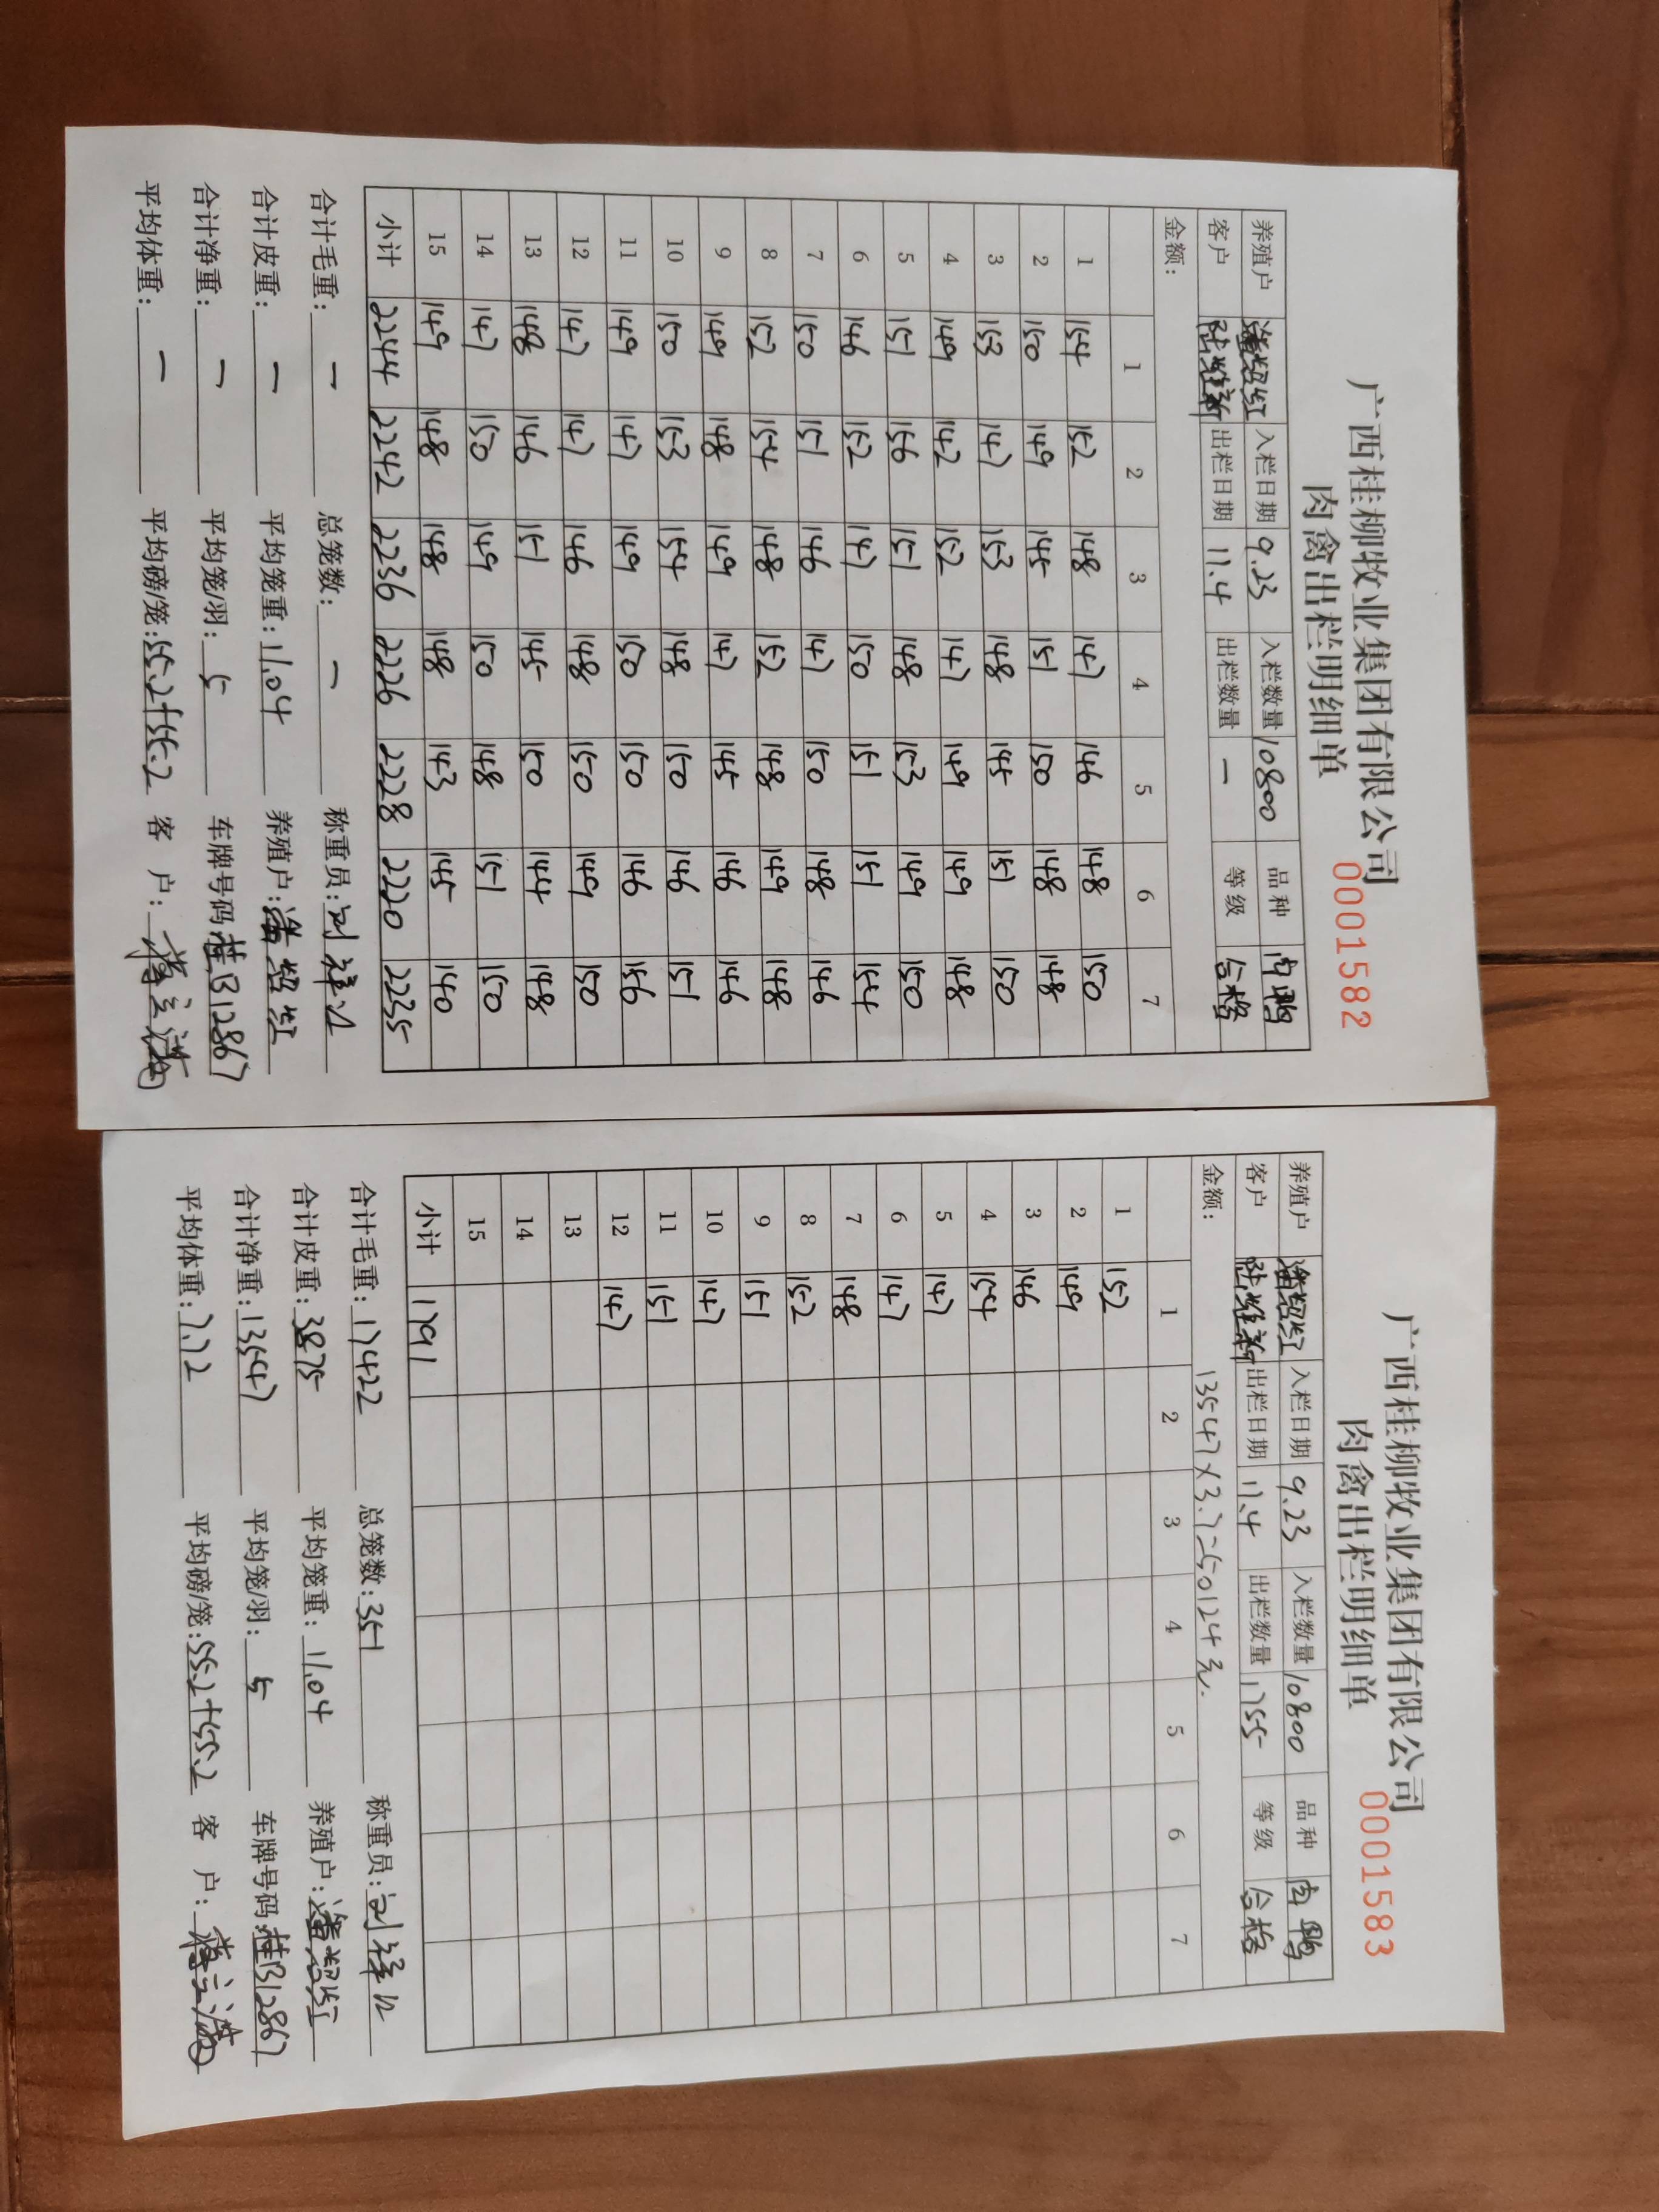 广西桂柳牧业集团有限公司
肉禽出栏明细单
0001582
养殖户 潘超红 入栏日期 9.23 入栏数量 10800 品种 肉鸭
客户 出栏日期 11.4 出栏数量 一 等级 合格
金额：
1 2 3 4 5 6 7
1 154 152 148 147 146 148 150
2 150 149 145 151 150 148 148
3 153 147 153 148 145 151 150
4 149 142 152 147 149 149 148
5 151 156 151 148 153 149 150
6 146 152 147 150 151 151 154
7 150 151 146 147 150 148 146
8 152 154 148 152 148 149 148
9 149 148 149 147 145 146 146
10 150 153 154 148 150 146 151
11 149 147 149 150 150 146 156
12 147 147 146 148 150 149 150
13 148 146 151 145 150 144 148
14 147 150 149 150 148 151 150
15 149 148 148 148 143 145 140
小计 2244 2242 2236 2226 2228 2220 2235
合计毛重：一 总笼数：一 称重员：
合计皮重：一 平均笼重：11.04 养殖户：潘超红
合计净重：一 平均笼/羽：5 车牌号码：桂B12867
平均体重：一 平均磅/笼：55.2+55.2 客 户：
广西桂柳牧业集团有限公司
肉禽出栏明细单
0001583
养殖户 潘超红 入栏日期 9.23 入栏数量 10800 品种 肉鸭
客户 出栏日期 11.4 出栏数量 1755 等级 合格
金额： 13547×3.7=50124元.
1 2 3 4 5 6 7
1 152
2 149
3 146
4 154
5 147
6 147
7 148
8 152
9 151
10 147
11 151
12 147
13
14
15
小计 1791
合计毛重：17422 总笼数：351 称重员：
合计皮重：3875 平均笼重：11.04 养殖户：潘超红
合计净重：13547 平均笼/羽：5 车牌号码：桂B12867
平均体重：7.72 平均磅/笼：55.2+55.2 客 户：